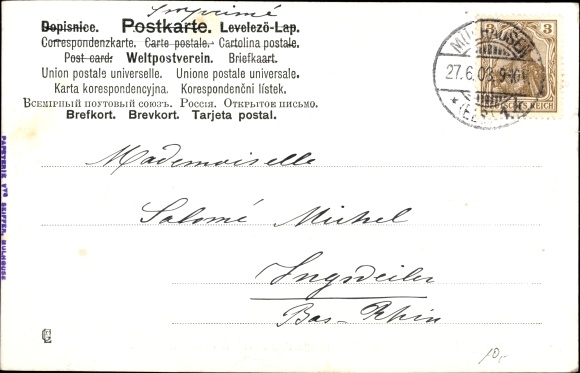 Imprimé
Dopisnice. Postkarte. Levelező-Lap.
Correspondenzkarte. Carte postale. Cartolina postale.
Post card. Weltpostverein. Briefkaart.
Union postale universelle. Unione postale universale.
Karta korespondencyjna. Korespondenční lístek.
Всемірный почтовый союзъ. Россія. Открытое письмо.
Brefkort. Brevkort. Tarjeta postal.
3 3
27.6.03. 9-10
DEUTSCHES REICH
Mademoiselle
Salomé Michel
Ingweiler
Bas-Rhin
10,-